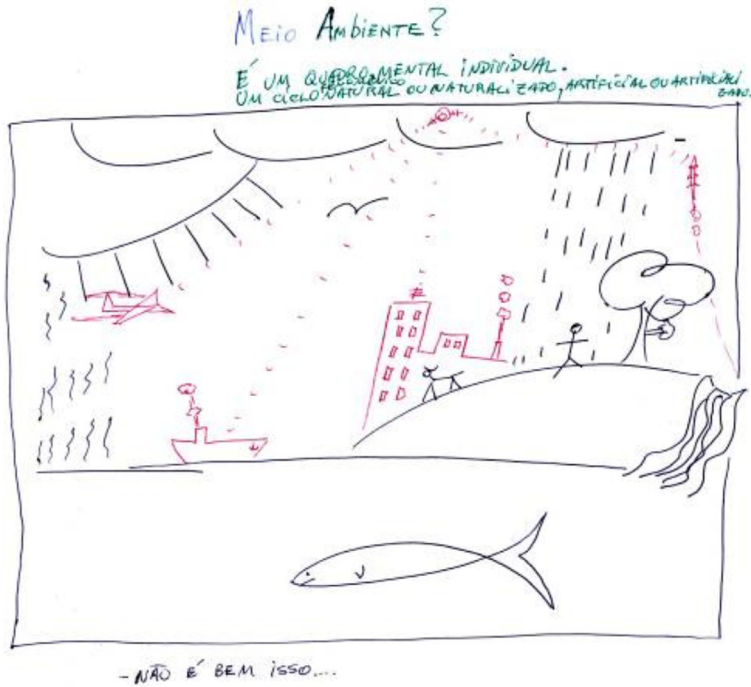 MEIO AMBIENTE?
É UM QUADRO MENTAL INDIVIDUAL.
UM CICLO NATURAL OU NATURALIZADO, ARTIFICIAL OU ARTIFICIALI
ZADO.
- NÃO É BEM ISSO....